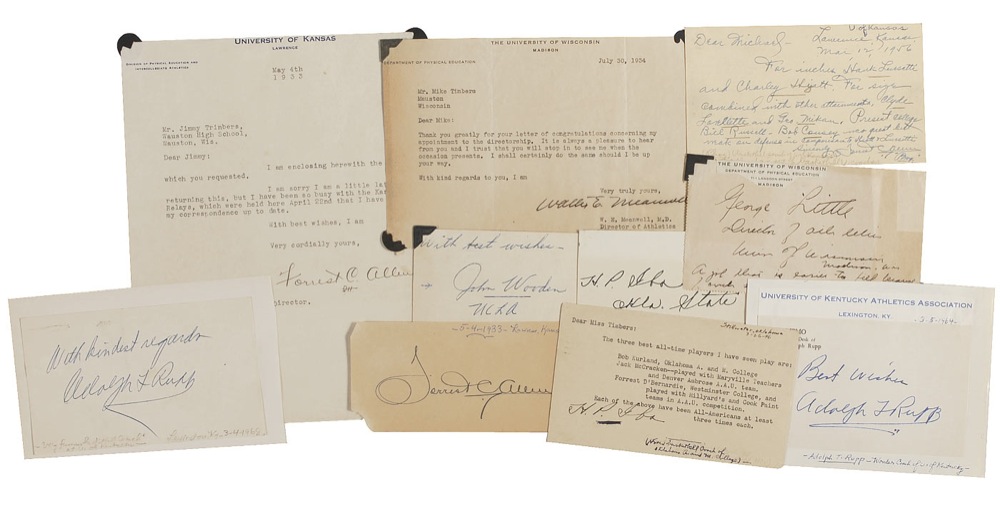 UNIVERSITY OF KANSAS
LAWRENCE
DIVISION OF PHYSICAL EDUCATION AND
INTERCOLLEGIATE ATHLETICS
May 4th
1933
Mr. Jimmy Trinbers,
Mauston High School,
Mauston, Wis.
Dear Jimmy:
I am enclosing herewith the
which you requested.
I am sorry I am a little lat
returning this, but I have been so busy with the Kan
Relays, which were held here April 22nd that I have
my correspondence up to date.
With best wishes, I am
Very cordially yours,
Forrest C. Allen
Director.
THE UNIVERSITY OF WISCONSIN
MADISON
DEPARTMENT OF PHYSICAL EDUCATION
July 30, 1934
Mr. Mike Tinbers
Mauston
Wisconsin
Dear Mike:
Thank you greatly for your letter of congratulations concerning my
appointment to the directorship. It is always a pleasure to hear
from you and I trust that you will stop in to see me when the
occasion presents. I shall certainly do the same should I be up
your way.
With kind regards to you, I am
Very truly yours,
Walter E. Meanwell
W. E. Meanwell, M.D.
Director of Athletics
U of Kansas
Lawrence, Kansas
Mar 12, 1956
Dear Michael-
For inches Hank Luisetti
and Charley Hyatt. For size
combined with other attainments, Clyde
Lovellette and Geo Mikan. Present average
Bill Russell. Bob Cousey was great but
THE UNIVERSITY OF WISCONSIN
DEPARTMENT OF PHYSICAL EDUCATION
MADISON
George Little
Director of athletics
Univ of Wisconsin
Madison, Wis
With best wishes-
John Wooden
UCLA
H. P. Iba
Okla. State
With kindest regards
Adolph F. Rupp
-5-4-1933- Kansas, Kans
Forrest C. Allen
Dear Miss Tinbers:
The three best all-time players I have seen play are:
Bob Kurland, Oklahoma A. and M. College
Jack McCracken--played with Maryville Teachers
and Denver Ambrose A.A.U. team.
Forrest D'Bernardie, Westminster College, and
played with Hillyard's and Cook Paint
teams in A.A.U. competition.
Each of the above have been All-Americans at least
three times each.
H. P. Iba
UNIVERSITY OF KENTUCKY ATHLETICS ASSOCIATION
LEXINGTON, KY.
-5-5-1964-
Desk of
Adolph Rupp
Best wishes
Adolph F. Rupp